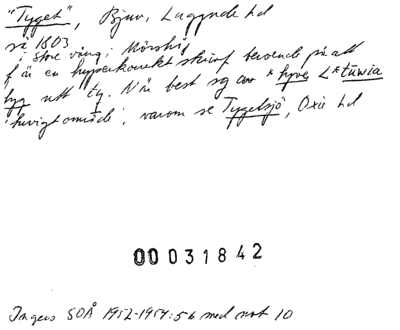 "Tyget", Bjuv, Luggude hd
så 1803
i store vång, Mörshög
f är en hyperkorrekt skrivn beroende på att
byg utt ty. N är best sg av *tyve L *tūwia
'huvigt område', varom se Tygelsjö, Oxie hd
00031842
Ingers SOÅ 1952-1954:56 med not 10